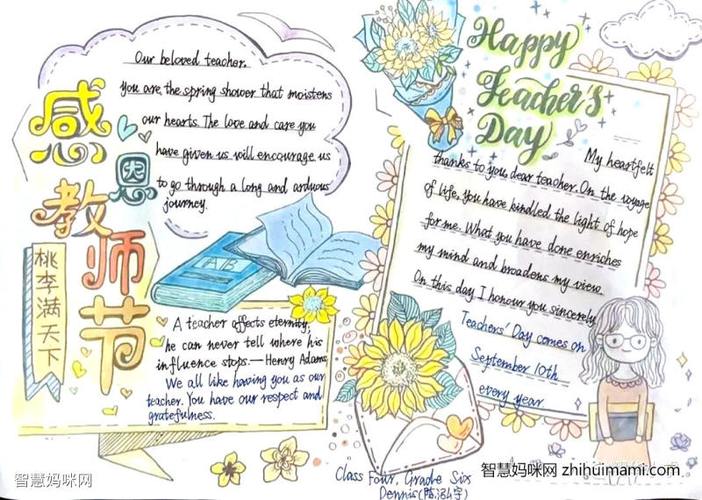 感恩教师节
桃李满天下
Our beloved teacher.
You are the spring shower that moistens
our hearts. The love and care you
have given us will encourage us
to go through a long and arduous
journey.
A B
A teacher affects eternity;
he can never tell where his
influence stops.—Henry Adams
We all like having you as our
teacher. You have our respect and
gratefulness.
Happy
Teacher's
Day
My heartfelt
thanks to you, dear teacher. On the voyage
of life, you have kindled the light of hope
for me. What you have done enriches
my mind and broadens my view.
On this day I honour you sincerely
Teachers' Day comes on
September 10th
every year
Class Four, Grade Six
Dennis(陈泓宇)
智慧妈咪网
智慧妈咪网 zhihuimami.com